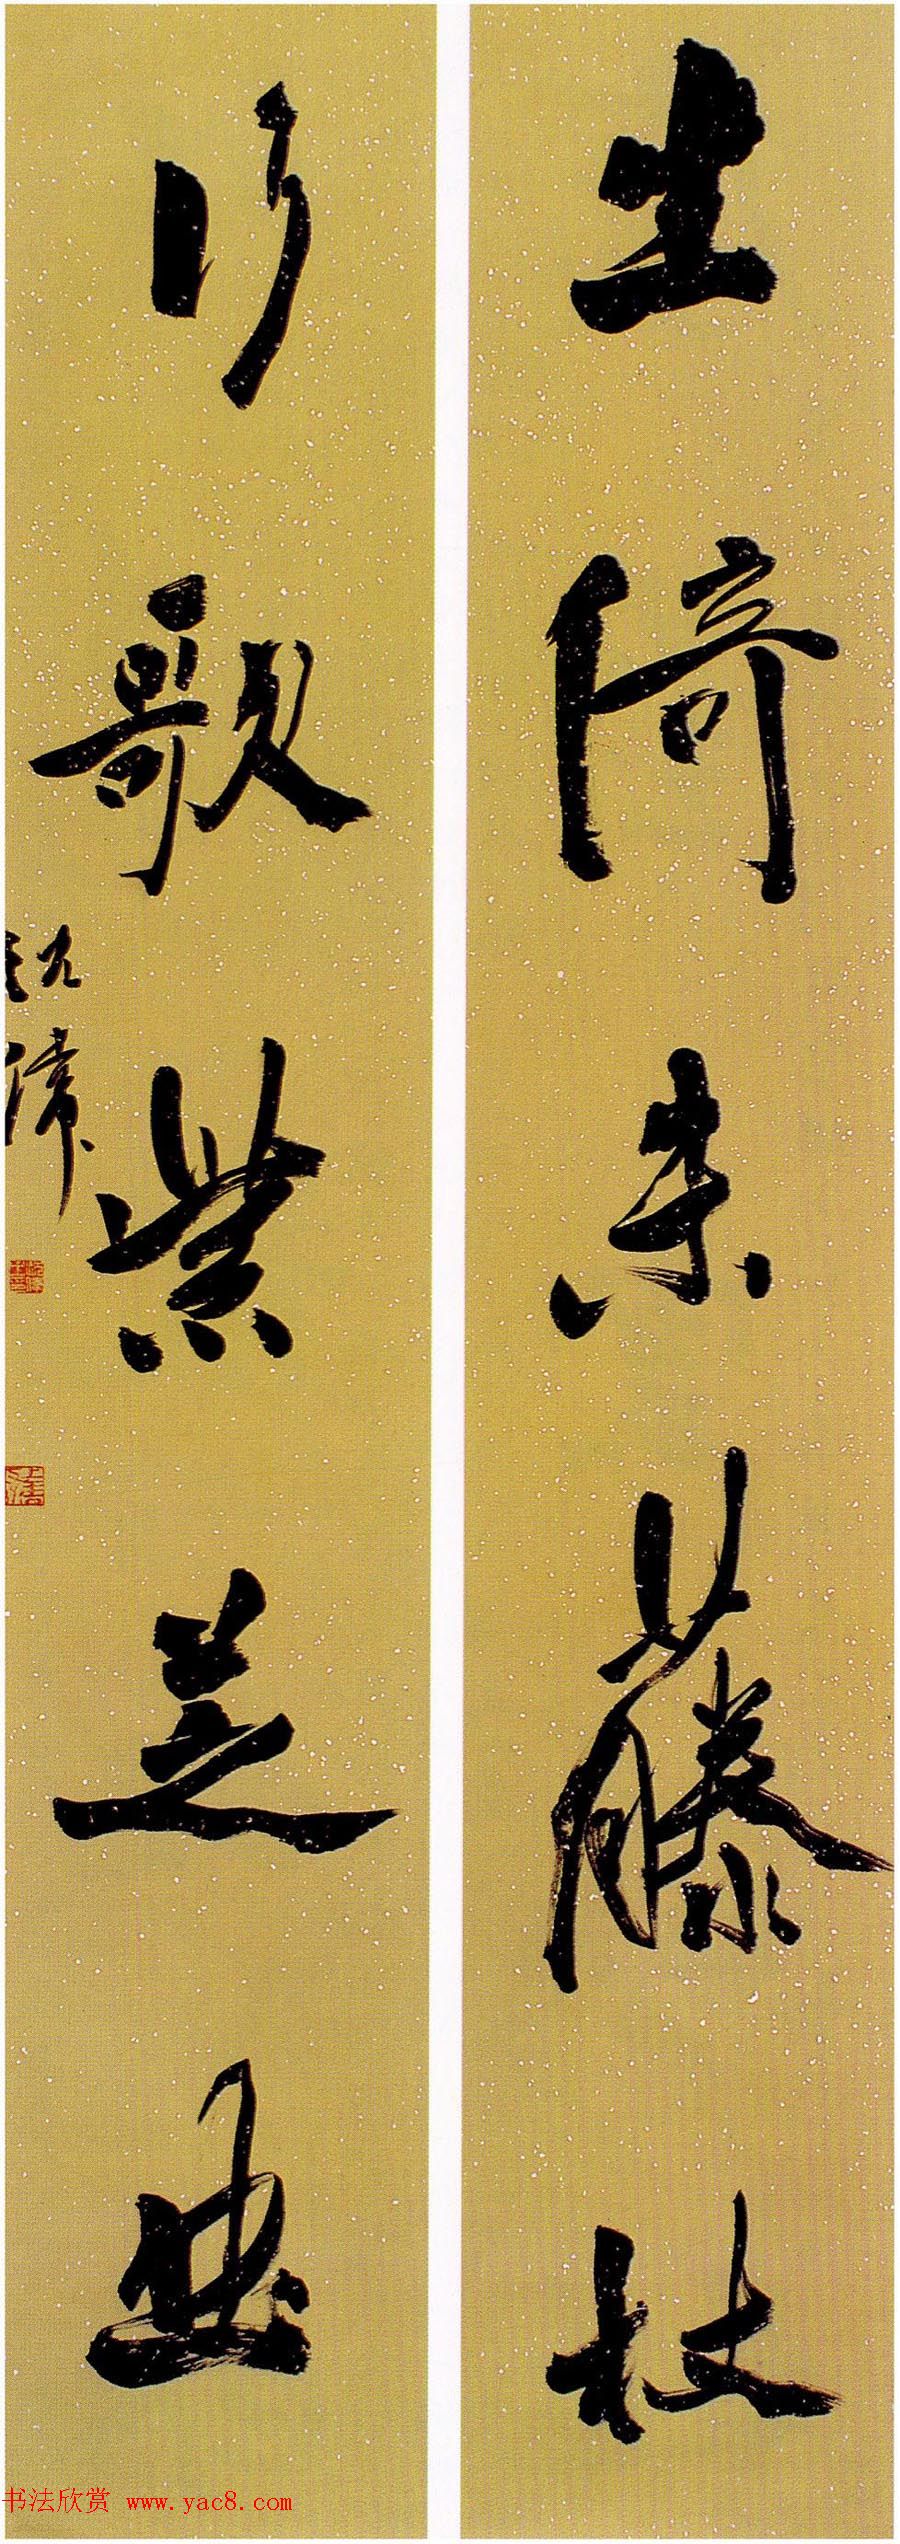 坐倚朱藤杖
行歌紫芝曲
沈伟
书法欣赏 www.yac8.com